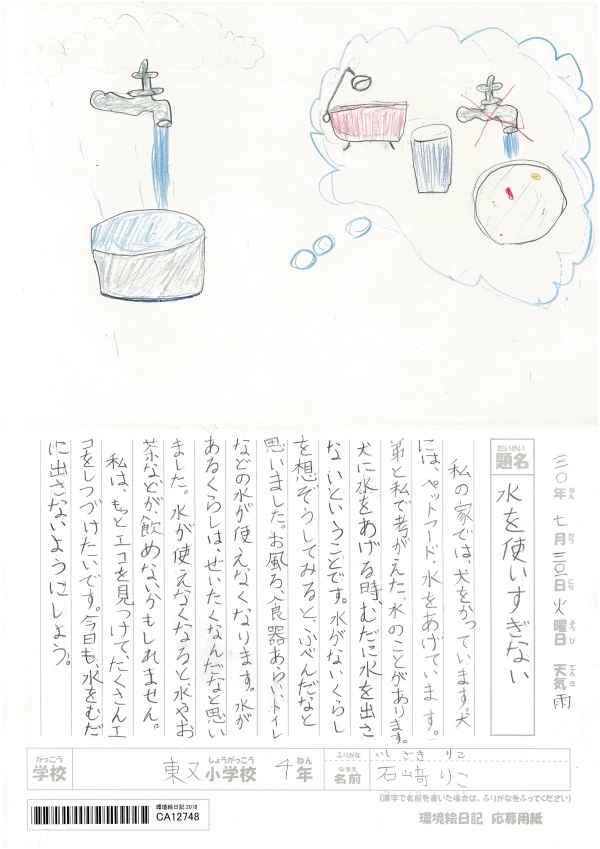 三〇年 七月三〇日 火曜日 天気 雨
ねん がつ にち ようび てんき
だいめい
題名 水を使いすぎない
私の家では、犬をかっています。犬
には、ペットフード、水をあげています。
弟と私で考がえた、水のことがあります。
犬に水をあげる時、むだに水を出さ
ないということです。水がないくらし
を想ぞうしてみると、ふべんだなと
思いました。お風ろ、食器あらい、トイレ
などの水が使えなくなります。水が
あるくらしは、ぜいたくなんだなと思い
ました。水が使えなくなると、水やお
茶などが、飲めないかもしれません。
私は、もっとエコを見つけて、たくさんエ
コをしつづけたいです。今日も、水をむだ
に出さないようにしよう。
がっこう しょうがっこう ねん
学校 東又小学校 4年
ふりがな いしざき りこ
なまえ
名前 石﨑りこ
(漢字で名前を書いた場合は、ふりがなをふってください)
環境絵日記 2018
CA12748
環境絵日記 応募用紙